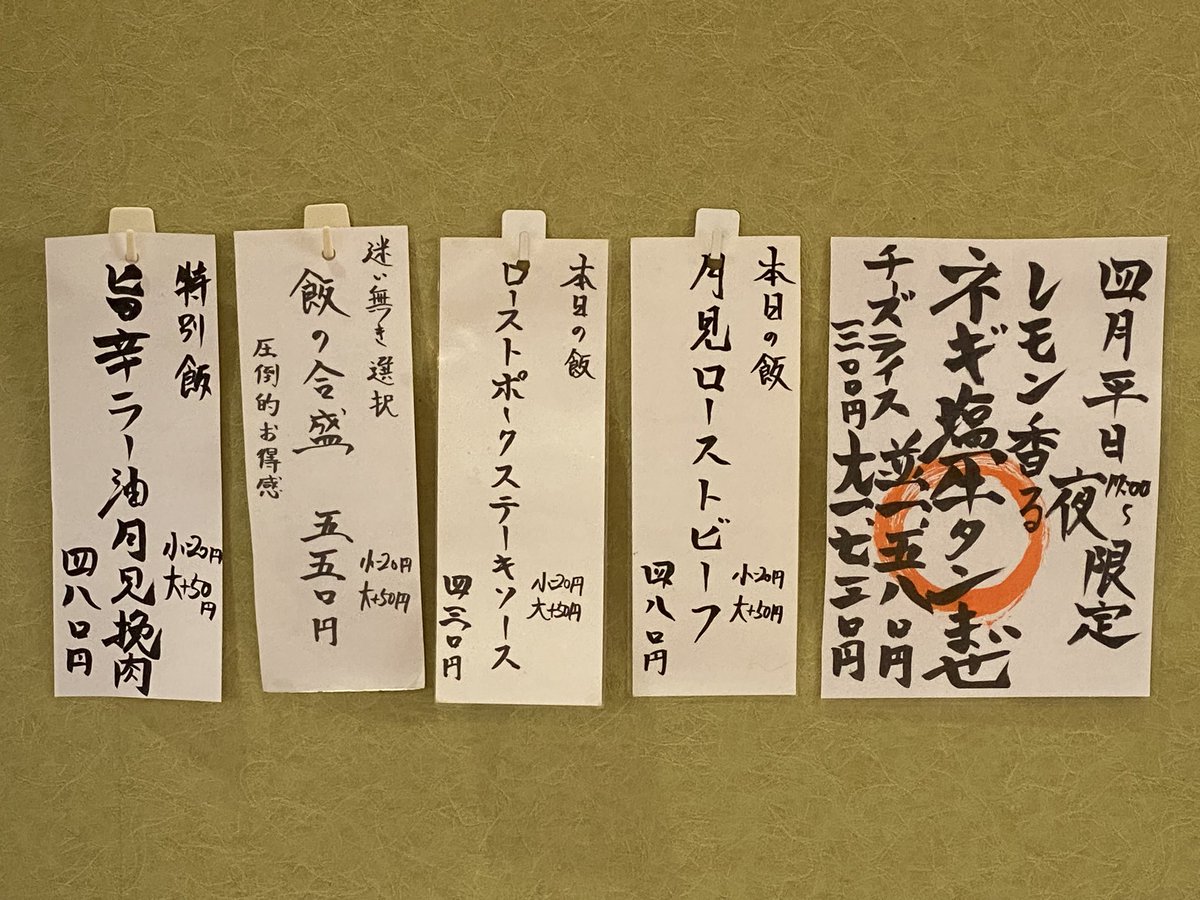 四月平日
17:00〜
夜限定
レモン香る
ネギ塩牛タンまぜ
並一、五八〇円
大一、七三〇円
チーズライス
三〇〇円
本日の飯
月見ローストビーフ
小-20円
大+50円
四八〇円
本日の飯
ローストポークステーキソース
小-20円
大+50円
四三〇円
迷い無き選択
飯の合盛 五五〇円
圧倒的お得感
小-20円
大+50円
特別飯
旨辛ラー油月見挽肉
小-20円
大+50円
四八〇円